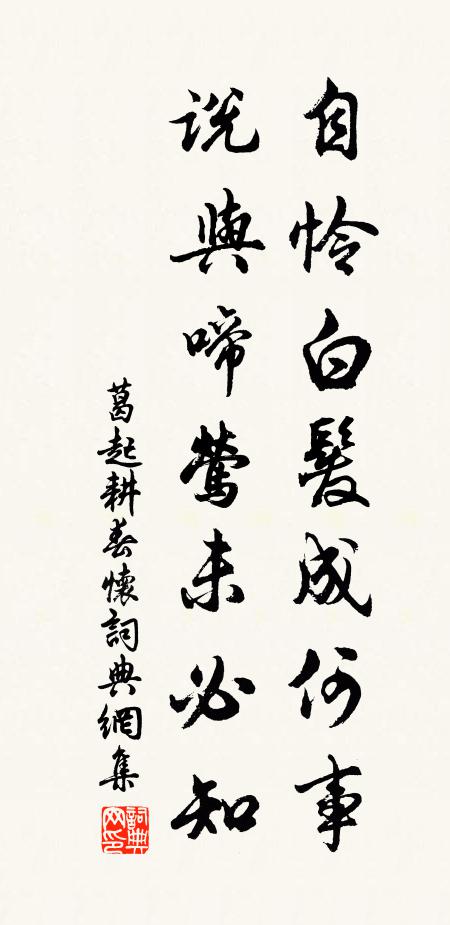 自怜白髮成何事
說與啼鶯未必知
葛起耕春懷詞典網集
詞典網印